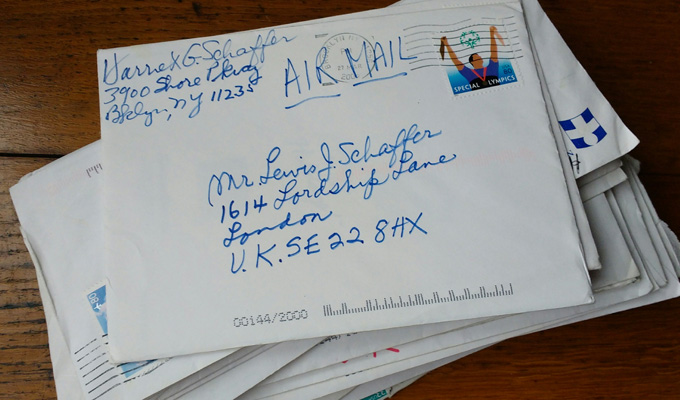 Harriet G. Schaffer
3900 Shore Pkwy
Bklyn, NY 11235
AIR MAIL
SPECIAL OLYMPICS
Mr. Lewis J. Schaffer
1614 Lordship Lane
London
U.K. SE22 8HX
00144/2000